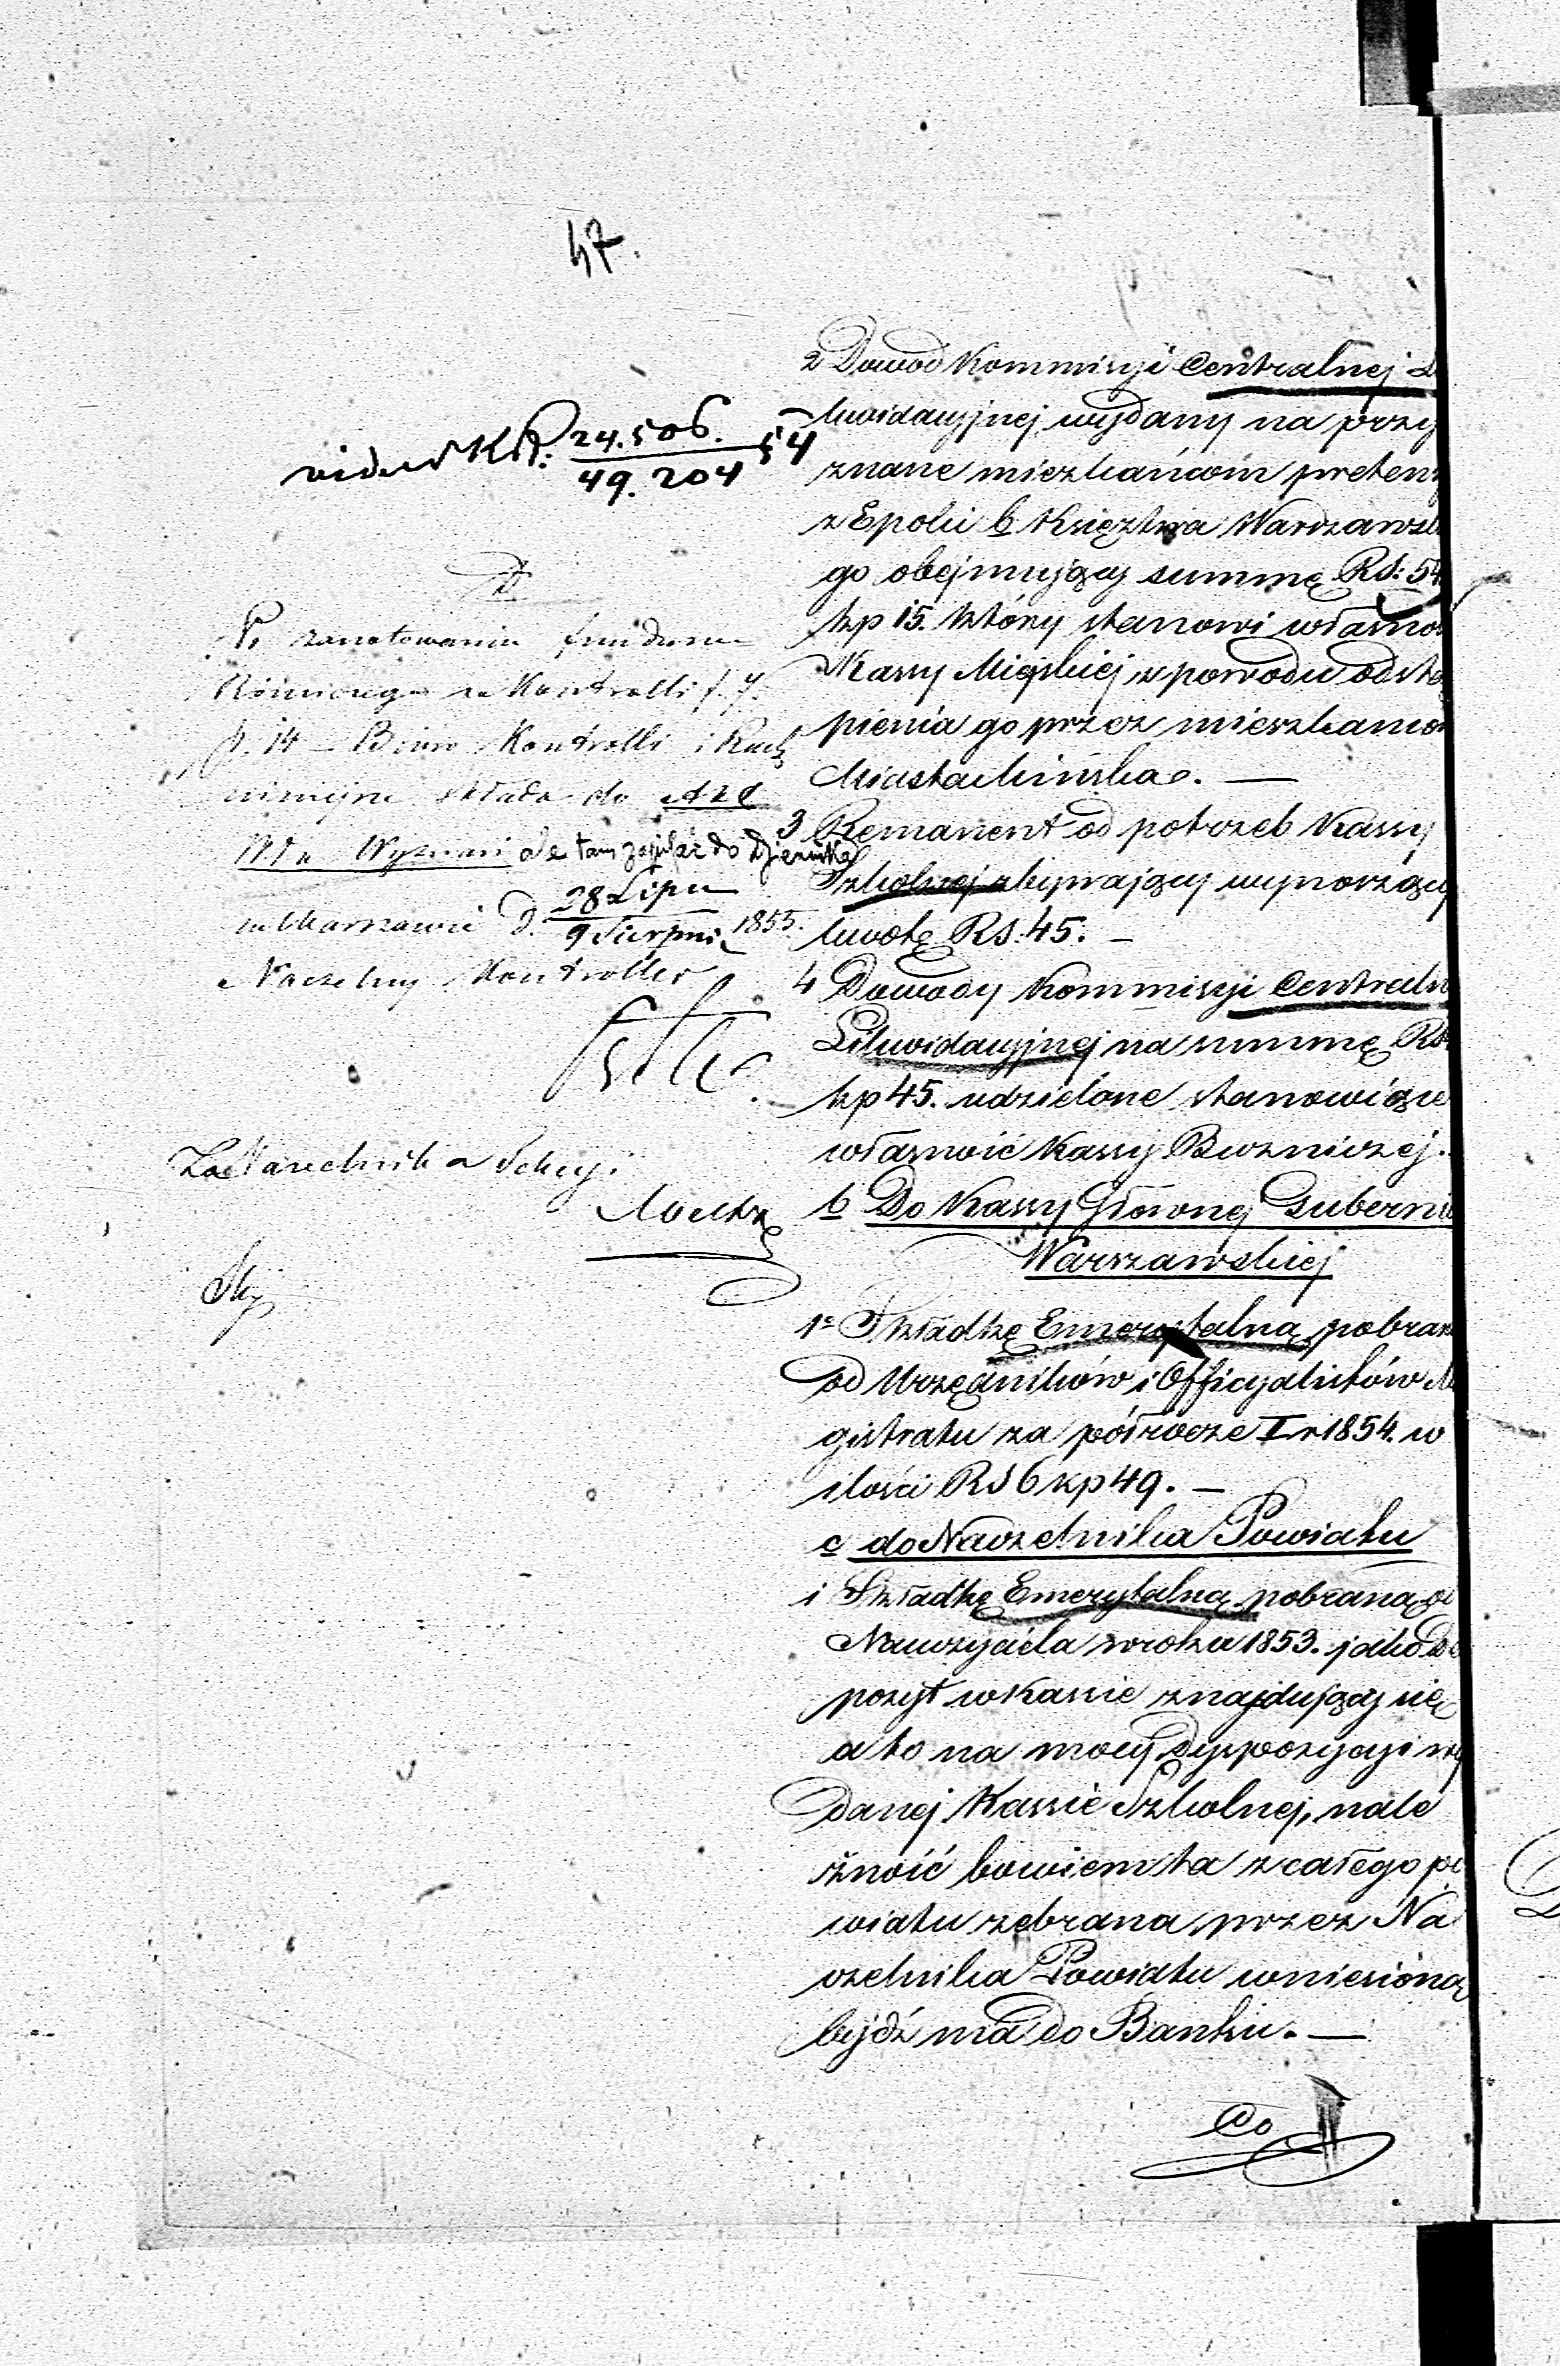 47.
vide W KR: 24.506./49.204 54
Po zanotowaniu funduszu
w Kontrolli f. 7.
p. 14 – Biuro Kontrolli i Rach
niniejsze składa do Akt
Wła Wyznań ale tam zapisać do dziennika
w Warszawie d. 28 Lipca/9 Sierpnia 1855.
Naczelny Kontroller
Za Naczelnika Sekcyi
2 Dowod Kommissyi Centralnej Li
kwidacyjnej wydany na przy
znane mieszkańcom preten
z Epoki b Księztwa Warszawsk
go obejmujący summę RS: 54
kp 15. który stanowi własno
Kassy Miejskiej z powodu odstą
pienia go przez mieszkanców
Miasta Mińska. —
3 Remanent od potrzeb Kassy
Szkolnej zbywający wynoszący
kwotę RS. 45. —
4 Dowody Kommissyi Centraln
Likwidacyjnej na summę RS
kp 45. udzielone stanowiące
własność Kassy Bożniczej.
b Do Kassy Głownej Gubernii
Warszawskiej
1e Składkę Emerytalną pobran
od Urzędników i Officyalistów Ma
gistratu za półrocze I r 1854. w
ilości RS 6 kp 49. —
c do Naczelnika Powiatu
1 Składkę Emerytalną pobraną od
Nauczyciela w roku 1853. jako De
pozyt w Kassie znajdujący się
a to na mocy Dyspozycyi wy
danej Kassie Szkolnej, nale
żność bowiem ta z całego po
wiatu zebrana przez Na
czelnika Powiatu wniesioną
bydź ma do Banku. —
Co